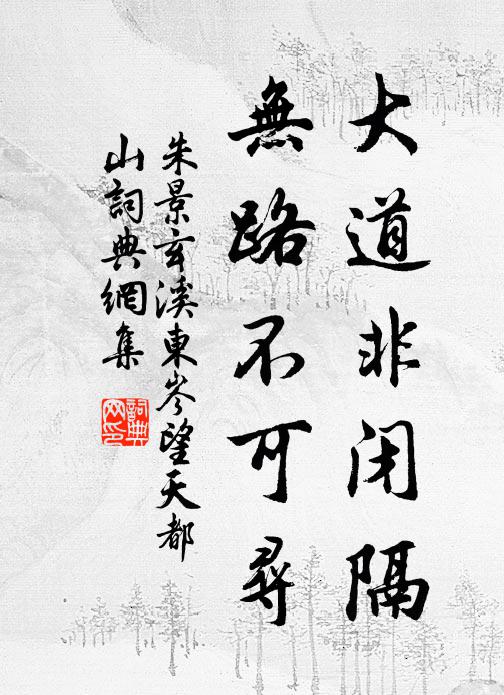 大道非闭隔
無路不可尋
朱景玄溪東岑望天都
山詞典網集
詞典
网印